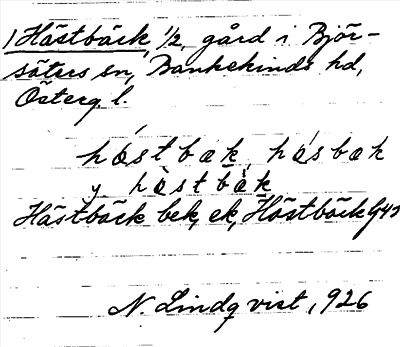 1 Hästbäck, 1/2, gård i Björ-
säters sn, Bankekinds hd,
Österg. l.
hästbæk, häsbæk
y hàstbàk
Hästbäck bek, ek, Hästbäck G43
N. Lindqvist, 926